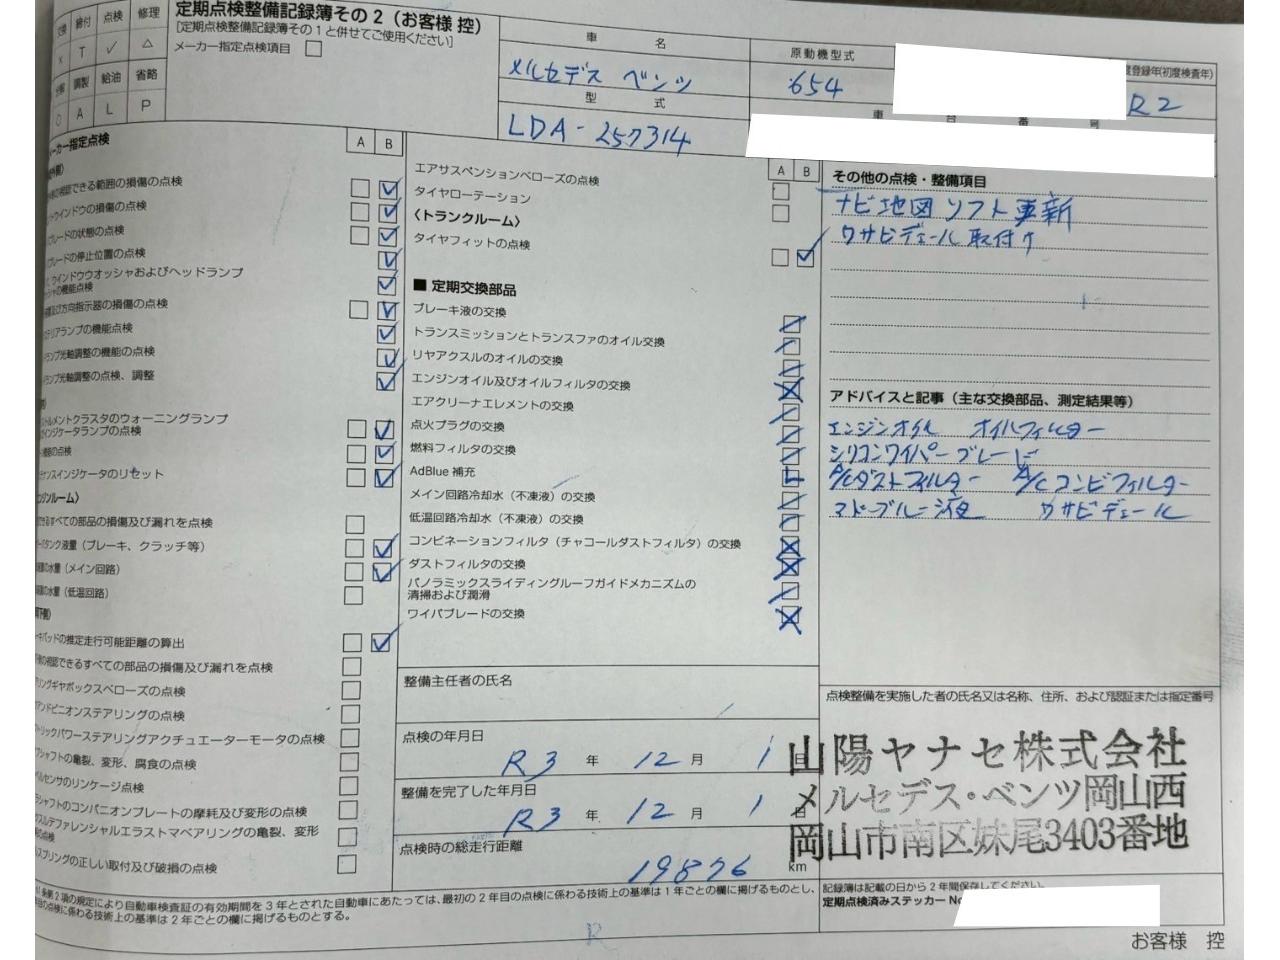 定期点検整備記録簿その2（お客様 控）
[定期点検整備記録簿その1と併せてご使用ください]
メーカー指定点検項目
締付 点検 修理
× T ✓ △
調製 給油 省略
A L P
車 名
メルセデス ベンツ
原動機型式
654
登録年(初度検査年)
R2
型 式
LDA-257314
車 台 番 号
カー指定点検
A B
できる範囲の損傷の点検
ウインドウの損傷の点検
ブレードの状態の点検
ブレードの停止位置の点検
ウインドウウオッシャおよびヘッドランプ
の機能点検
及び方向指示器の損傷の点検
リアランプの機能点検
ンプ光軸調整の機能の点検
ンプ光軸調整の点検、調整
トルメントクラスタのウォーニングランプ
インジケータランプの点検
の点検
ナンスインジケータのリセット
ンジンルーム〉
できるすべての部品の損傷及び漏れを点検
バタンク液量（ブレーキ、クラッチ等）
の水量（メイン回路）
の水量（低温回路）
キパッドの推定走行可能距離の算出
の視認できるすべての部品の損傷及び漏れを点検
リングギヤボックスベローズの点検
アンドピニオンステアリングの点検
トリックパワーステアリングアクチュエーターモータの点検
シャフトの亀裂、変形、腐食の点検
ルセンサのリンケージ点検
シャフトのコンパニオンプレートの摩耗及び変形の点検
デファレンシャルエラストマベアリングの亀裂、変形
の点検
スプリングの正しい取付及び破損の点検
A B
エアサスペンションベローズの点検
タイヤローテーション
〈トランクルーム〉
タイヤフィットの点検
■ 定期交換部品
ブレーキ液の交換
トランスミッションとトランスファのオイル交換
リヤアクスルのオイルの交換
エンジンオイル及びオイルフィルタの交換
エアクリーナエレメントの交換
点火プラグの交換
燃料フィルタの交換
AdBlue 補充
メイン回路冷却水（不凍液）の交換
低温回路冷却水（不凍液）の交換
コンビネーションフィルタ（チャコールダストフィルタ）の交換
ダストフィルタの交換
パノラミックスライディングルーフガイドメカニズムの
清掃および潤滑
ワイパブレードの交換
整備主任者の氏名
点検の年月日
R3 年 12 月 1 日
整備を完了した年月日
R3 年 12 月 1 日
点検時の総走行距離
19876 km
その他の点検・整備項目
ナビ地図ソフト更新
ワサビデェール取付け
アドバイスと記事（主な交換部品、測定結果等）
エンジンオイル オイルフィルター
シリコンワイパーブレード
A/Cダストフィルター A/Cコンビフィルター
アドーブルー液 ワサビデェール
点検整備を実施した者の氏名又は名称、住所、および認証または指定番号
山陽ヤナセ株式会社
メルセデス・ベンツ岡山西
岡山市南区妹尾3403番地
条第2項の規定により自動車検査証の有効期間を3年とされた自動車にあたっては、最初の2年目の点検に係わる技術上の基準は1年ごとの欄に掲げるものとし、
目の点検に係わる技術上の基準は2年ごとの欄に掲げるものとする。
記録簿は記載の日から2年間保存してください。
定期点検済みステッカー No
お客様 控